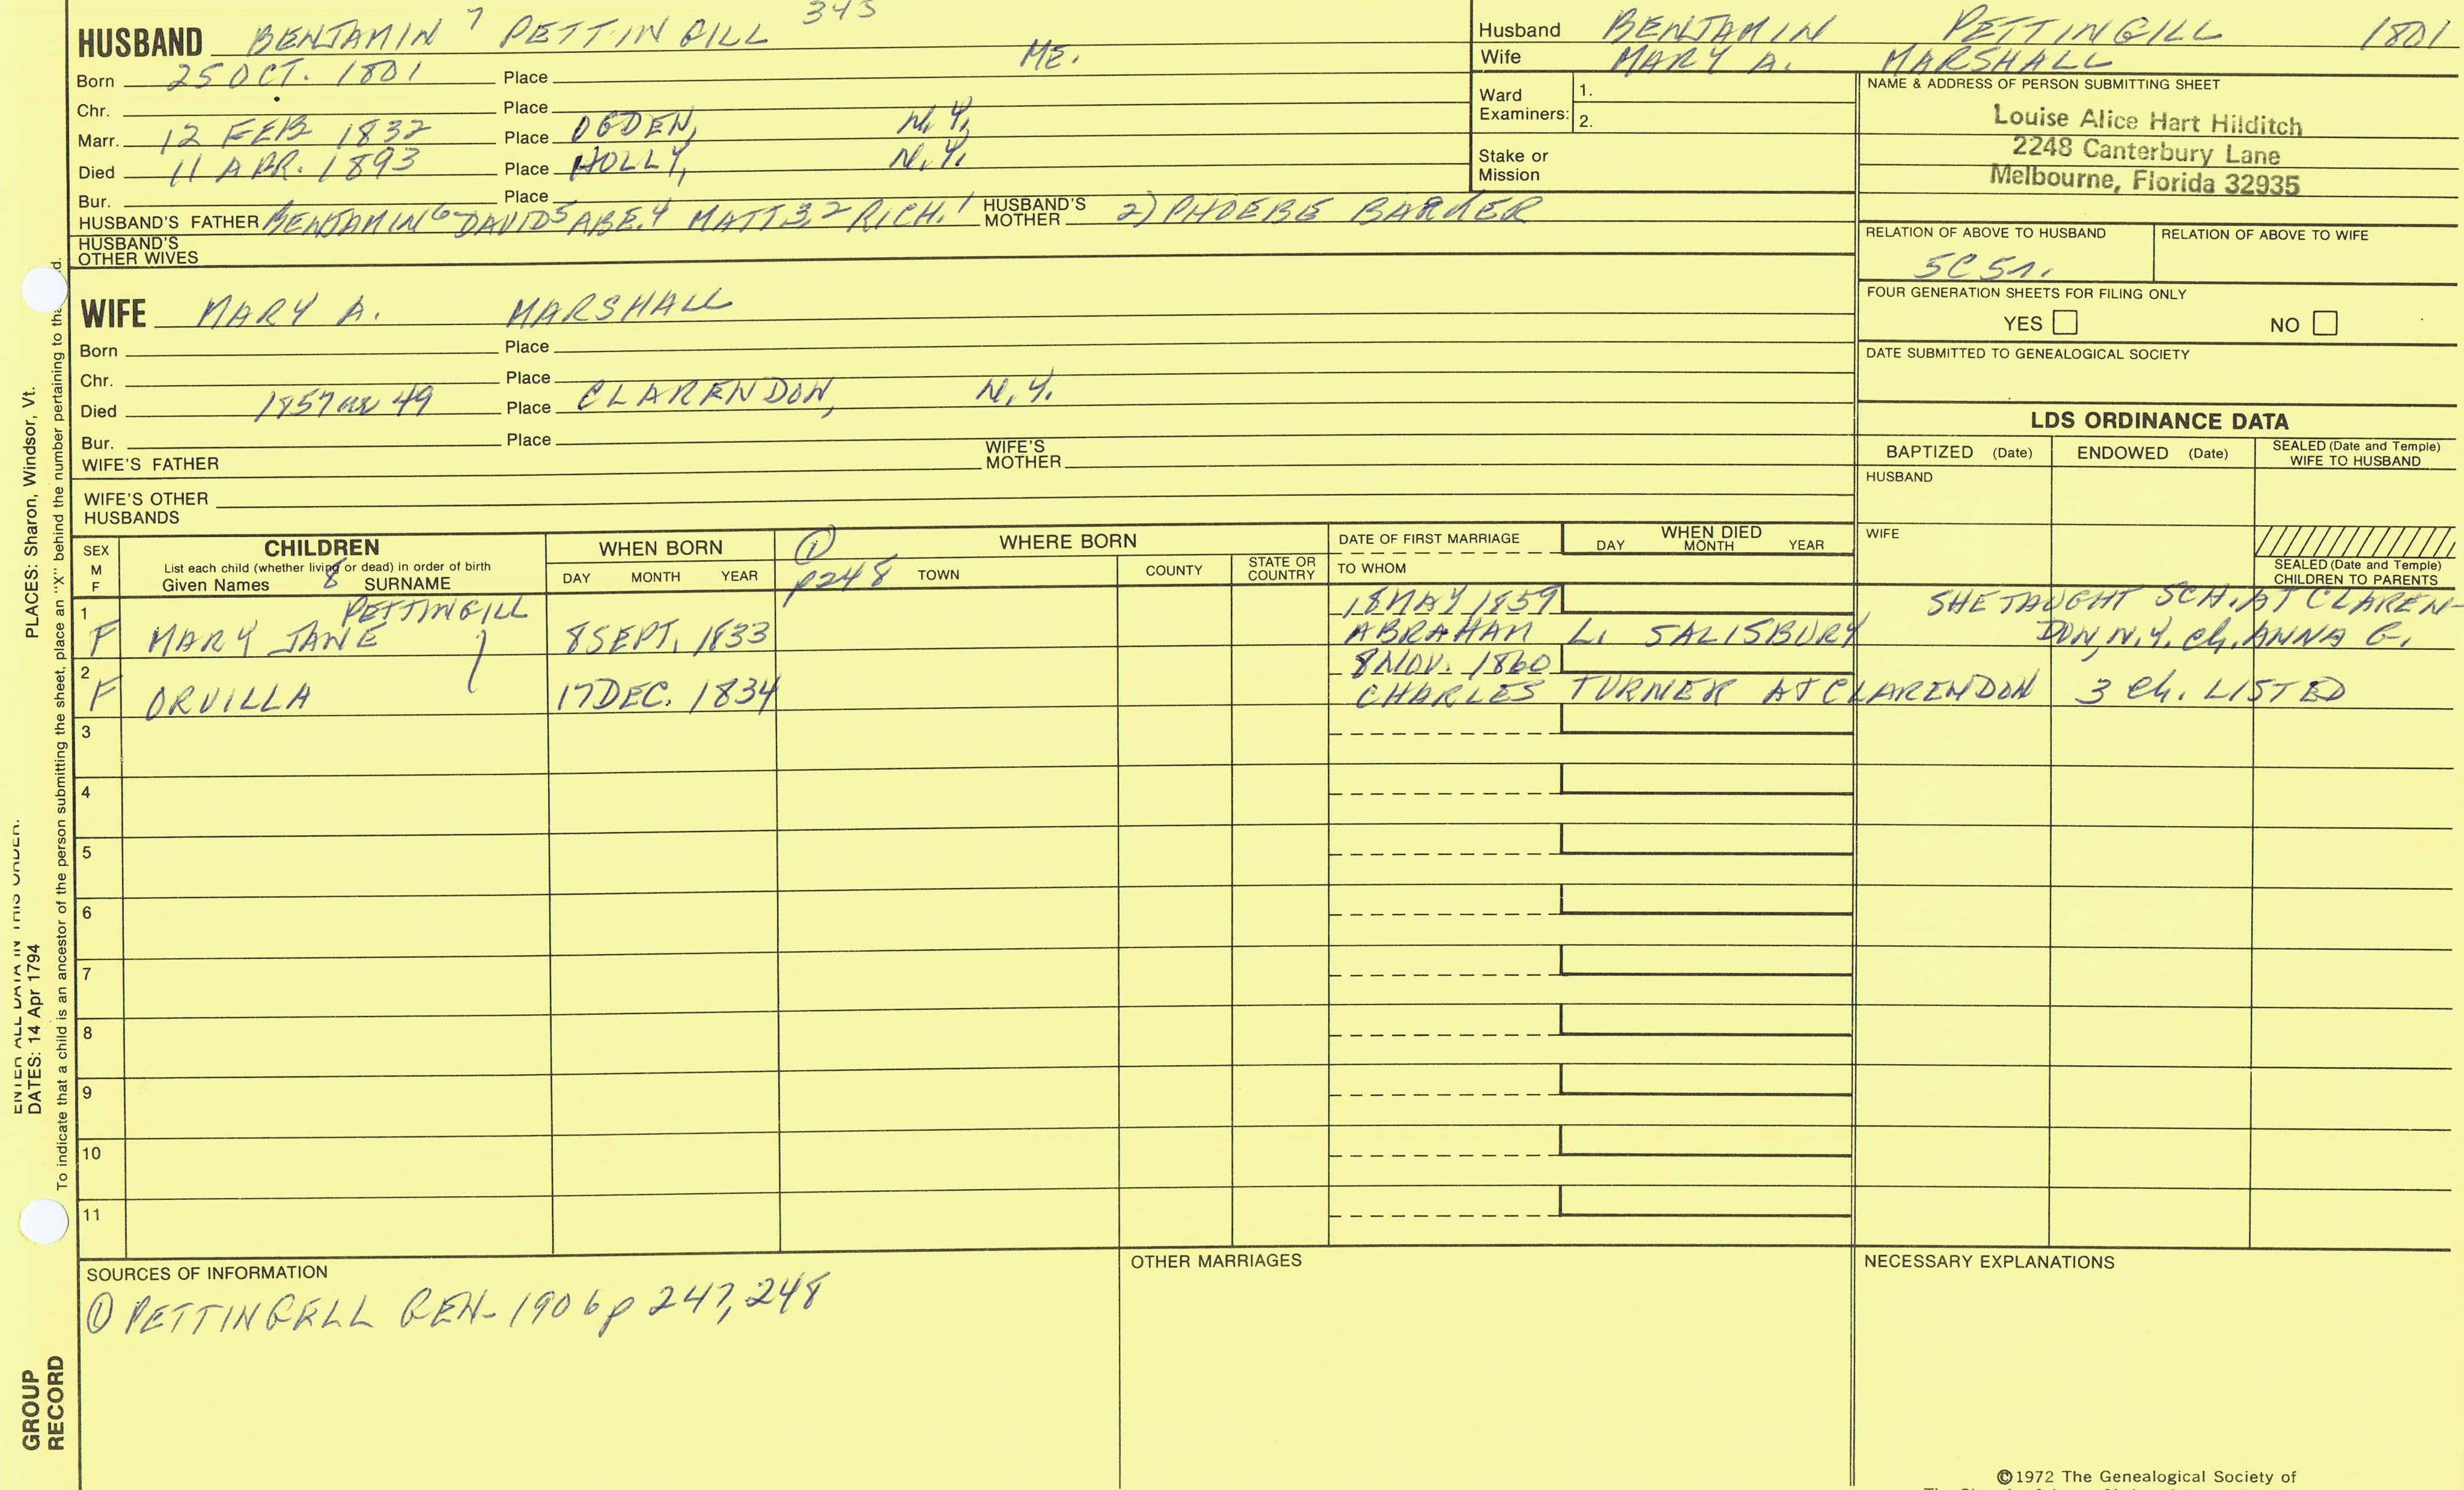 HUSBAND BENJAMIN 7 PETTINGILL 343
Born 25 OCT. 1801 Place ME.
Chr. Place
Marr. 12 FEB 1832 Place OGDEN, N.Y.
Died 11 APR. 1893 Place HOLLY, N.Y.
Bur. Place
HUSBAND'S FATHER BENJAMIN6 DAVID5 ABE.4 MATT3,2 RICH.1 HUSBAND'S MOTHER 2) PHOEBE BARKER
HUSBAND'S
OTHER WIVES
WIFE MARY A. MARSHALL
Born Place
Chr. Place
Died 1857 ae 49 Place CLARENDON, N.Y.
Bur. Place
WIFE'S FATHER WIFE'S MOTHER
WIFE'S OTHER
HUSBANDS
Husband BENJAMIN PETTINGILL 1801
Wife MARY A. MARSHALL
Ward Examiners: 1.
2.
Stake or
Mission
NAME & ADDRESS OF PERSON SUBMITTING SHEET
Louise Alice Hart Hilditch
2248 Canterbury Lane
Melbourne, Florida 32935
RELATION OF ABOVE TO HUSBAND RELATION OF ABOVE TO WIFE
5C5r.
FOUR GENERATION SHEETS FOR FILING ONLY
YES NO
DATE SUBMITTED TO GENEALOGICAL SOCIETY
LDS ORDINANCE DATA
BAPTIZED (Date) ENDOWED (Date) SEALED (Date and Temple) WIFE TO HUSBAND
HUSBAND
WIFE
SEALED (Date and Temple)
CHILDREN TO PARENTS
SEX M F
CHILDREN
List each child (whether living or dead) in order of birth
Given Names 8 SURNAME
WHEN BORN
DAY MONTH YEAR
① WHERE BORN
p248 TOWN COUNTY STATE OR COUNTRY
DATE OF FIRST MARRIAGE
TO WHOM
WHEN DIED
DAY MONTH YEAR
1 PETTINGILL 18 MAY 1859 SHE TAUGHT SCH. AT CLAREN-
F MARY JANE 8 SEPT. 1833 ABRAHAM L. SALISBURY DON, N.Y. Ch. ANNA G.
2 8 NOV. 1860
F ORVILLA 17 DEC. 1834 CHARLES TURNER AT CLARENDON 3 Ch. LISTED
3
4
5
6
7
8
9
10
11
SOURCES OF INFORMATION
① PETTINGELL GEN- 1906 p 247, 248
OTHER MARRIAGES
NECESSARY EXPLANATIONS
©1972 The Genealogical Society of
ENTER ALL DATA IN THIS ORDER:
DATES: 14 Apr 1794 PLACES: Sharon, Windsor, Vt.
To indicate that a child is an ancestor of the person submitting the sheet, place an "X" behind the number pertaining to tha d.
GROUP
RECORD